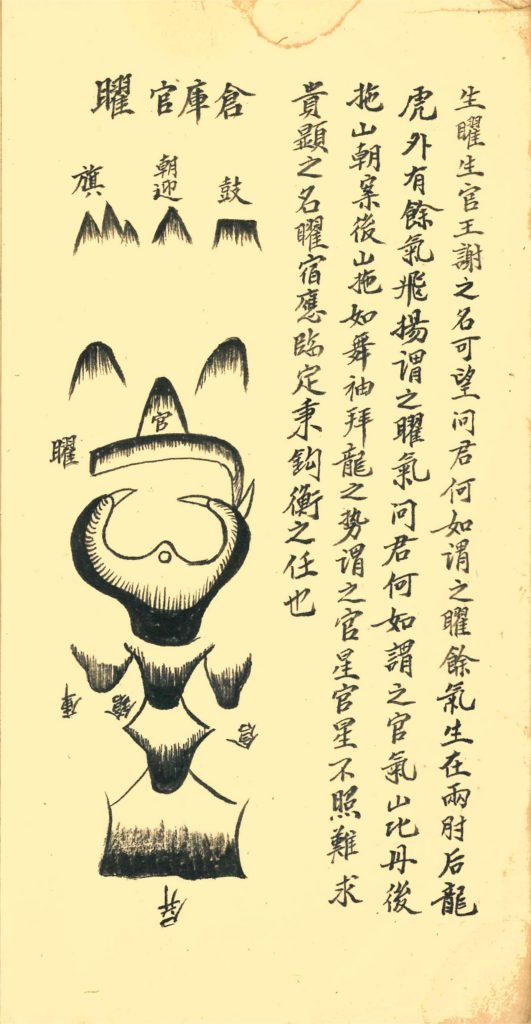 生曜生官王謝之名可望問君何如謂之曜餘氣生在兩肘后龍
虎外有餘氣飛揚謂之曜氣問君何如謂之官氣山比丹後
拖山朝案後山拖如舞袖拜龍之勢謂之官星官星不照難求
貴顯之名曜宿應臨定秉鈞衡之任也
倉庫官曜
鼓
朝迎
旗
官
曜
庫
倉
屏